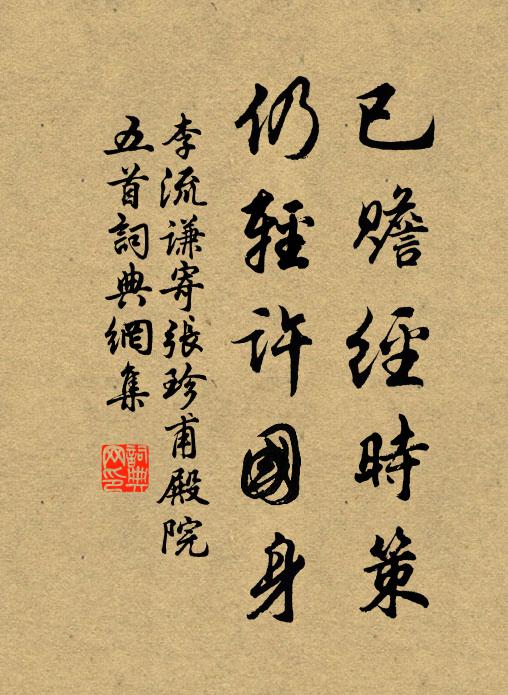 已贍經時策
仍輕許國身
李流谦寄張珍甫殿院
五首詞典網集
詞典
网印